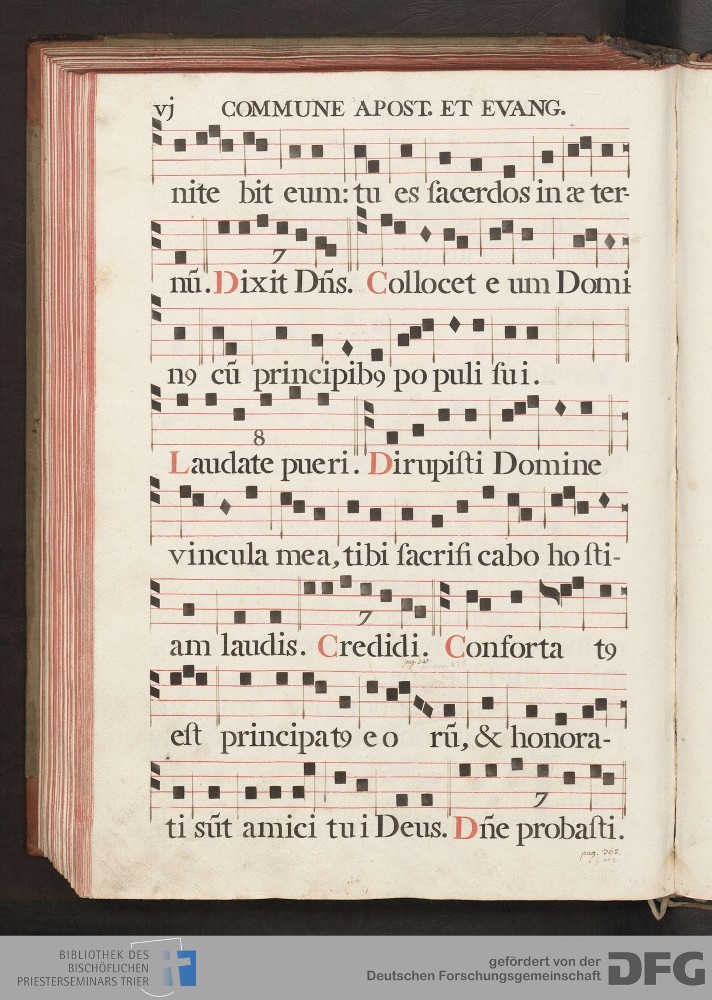 vj COMMUNE APOST. ET EVANG.
nite bit eum: tu es ſacerdos in æ ter-
nū. Dixit Dñs. Collocet e um Domi
7
n9 cū principib9 po puli ſui.
8
Laudate pueri. Dirupiſti Domine
vincula mea, tibi ſacrifi cabo ho ſti-
7
am laudis. Credidi. Conforta t9
eſt principat9 e o rū, & honora-
7
ti sūt amici tui Deus. Dñe probaſti.
BIBLIOTHEK DES
BISCHÖFLICHEN
PRIESTERSEMINARS TRIER
gefördert von der
Deutschen Forschungsgemeinschaft
DFG